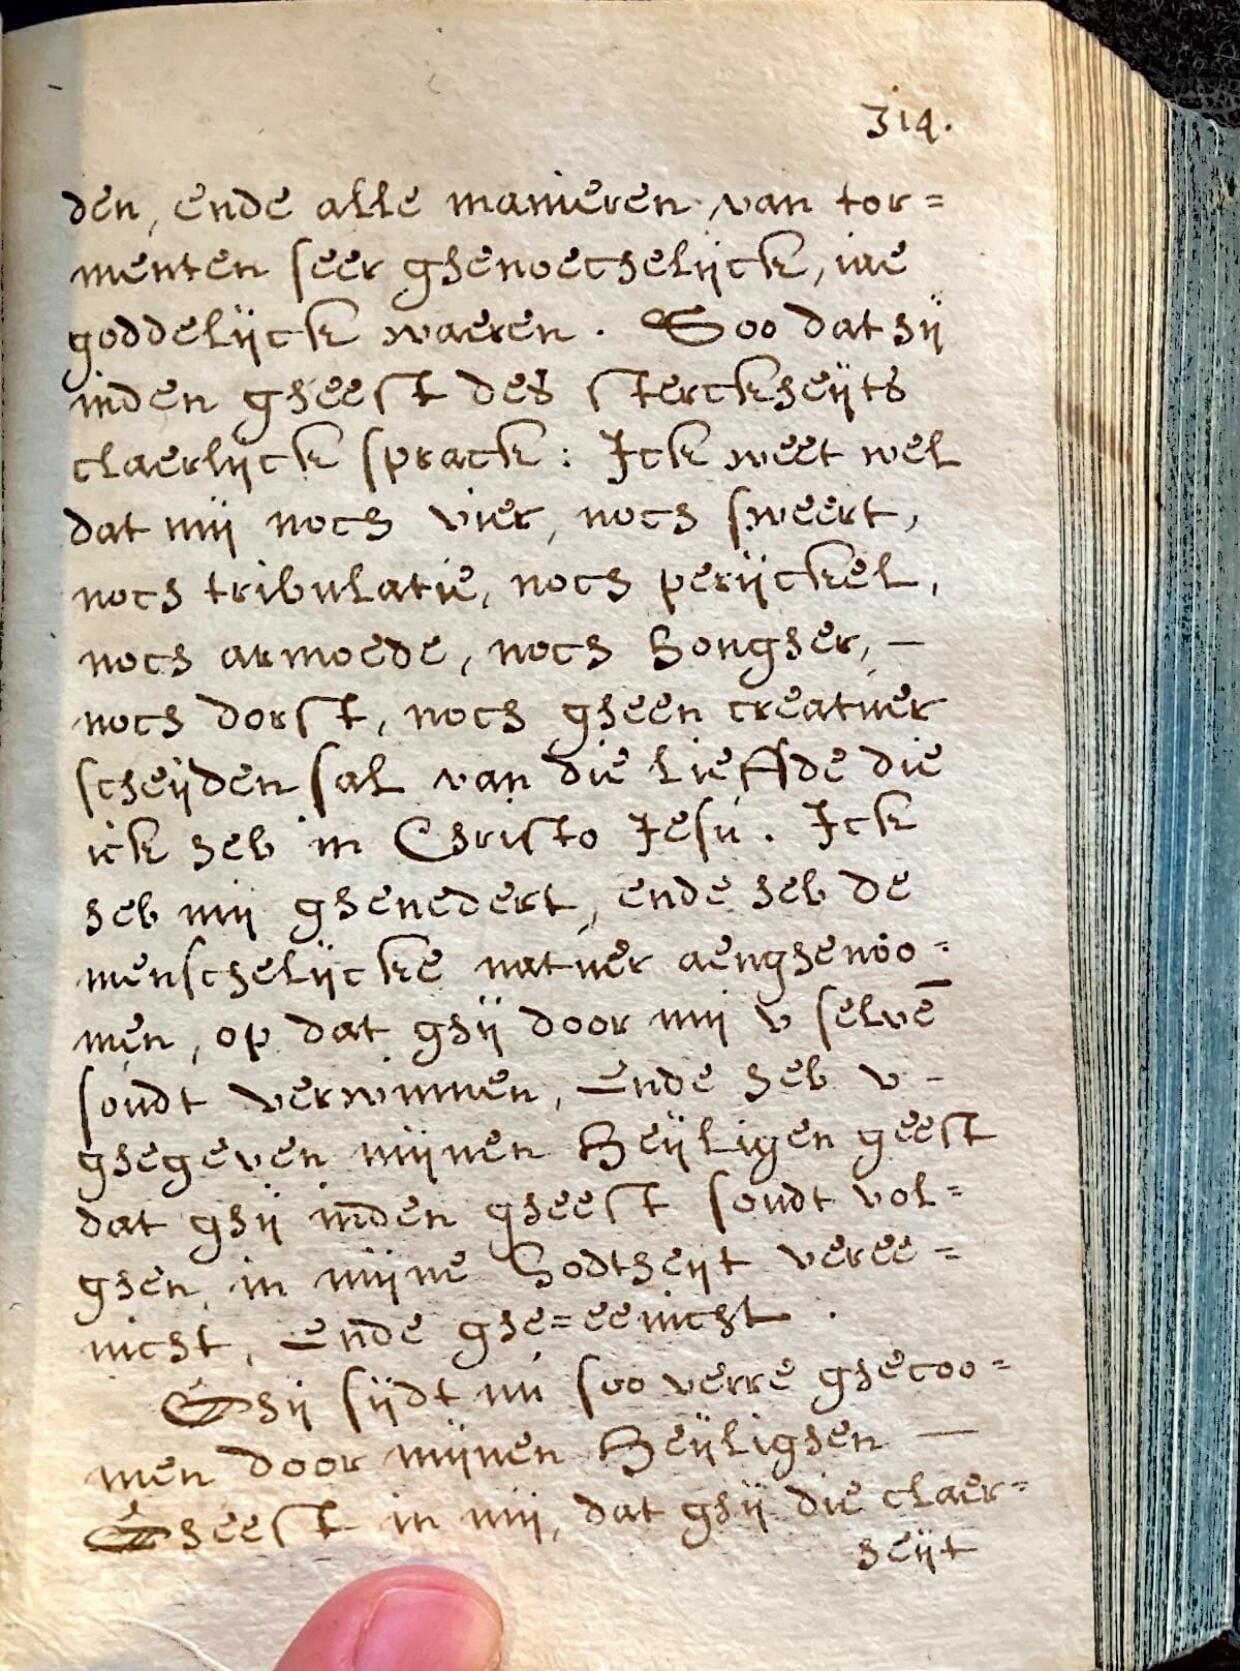 314.
den, ende alle manieren van tor=
menten seer ghenoechelijck, iae
goddelijck waeren. Soo dat hij
inden gheest des sterckheijts
claerlijck sprack: Ick weet wel
dat mij noch vier, noch sweert,
noch tribulatie, noch perijckel,
noch armoede, noch hongher, —
noch dorst, noch gheen creatuer
scheijden sal van die lieffde die
ick heb in Christo Jesu. Ick
heb mij ghenedert, ende heb de
menschelijcke natuer aenghenoo=
men, op dat ghij door mij v selvē
soudt verwinnen, Ende heb v -
ghegeven mijnen Heijligen geest
dat ghij inden gheest soudt vol=
ghen, in mijne Godtheijt veree=
nicht, Ende ghe=eenicht.
Ghij sijdt nu soo verre ghecoo=
men door mijnen Heijlighen —
Gheest in mij, dat ghij die claer=
heijt